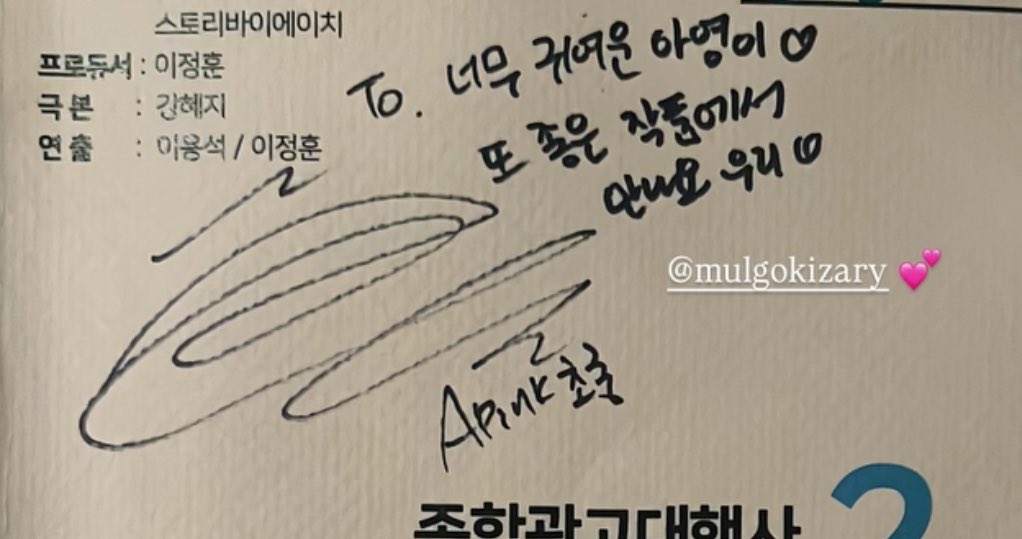 스토리바이에이치
프로듀서 : 이정훈
극본 : 강혜지
연출 : 이용석 / 이정훈
To. 너무 귀여운 아영이♡
또 좋은 작품에서
만나요 우리♡
@mulgokizary 💕
Apink 초롱
종합광고대행사 2